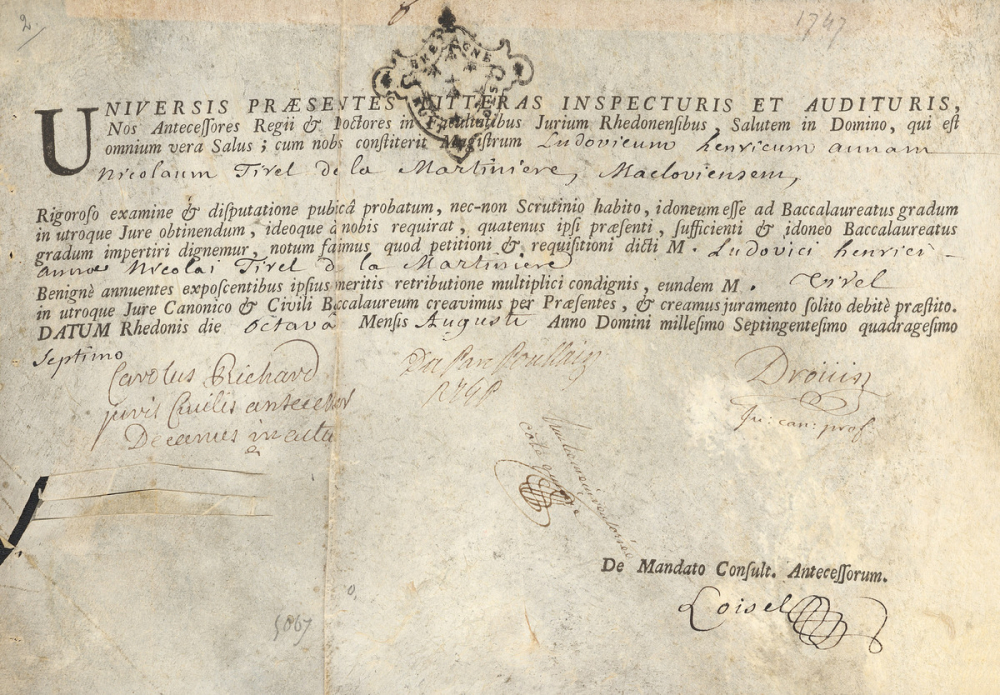 2
1747
BRETAGNE
UNIVERSIS PRÆSENTES LITTERAS INSPECTURIS ET AUDITURIS,
Nos Antecessores Regii & Doctores in Facultatibus Jurium Rhedonensibus, Salutem in Domino, qui est
omnium vera Salus; cum nobis constiterit Magistrum Ludovicum henricum annam
Nicolaum Tirel de la Martiniere, Macloviensem,
Rigoroso examine & disputatione pubicâ probatum, nec-non Scrutinio habito, idoneum esse ad Baccalaureatus gradum
in utroque Jure obtinendum, ideoque à nobis requirat, quatenus ipsi præsenti, sufficienti & idoneo Baccalaureatus
gradum impertiri dignemur, notum faimus quod petitioni & requisitioni dicti M. Ludovici henrici
annæ Nicolai Tirel de la Martiniere
Benignè annuentes exposcentibus ipsius meritis retributione multiplici condignis, eundem M. Tirel
in utroque Jure Canonico & Civili Baccalaureum creavimus per Præsentes, & creamus juramento solito debitè præstito.
DATUM Rhedonis die octavâ Mensis Augusti Anno Domini millesimo Septingentesimo quadragesimo
septimo
Carolus Richard
juris Civilis antecessor
Decanus in actu
Du Parc Poullain
Drouin
Ju: can: prof.
De Mandato Consult. Antecessorum.
Loisel
5067